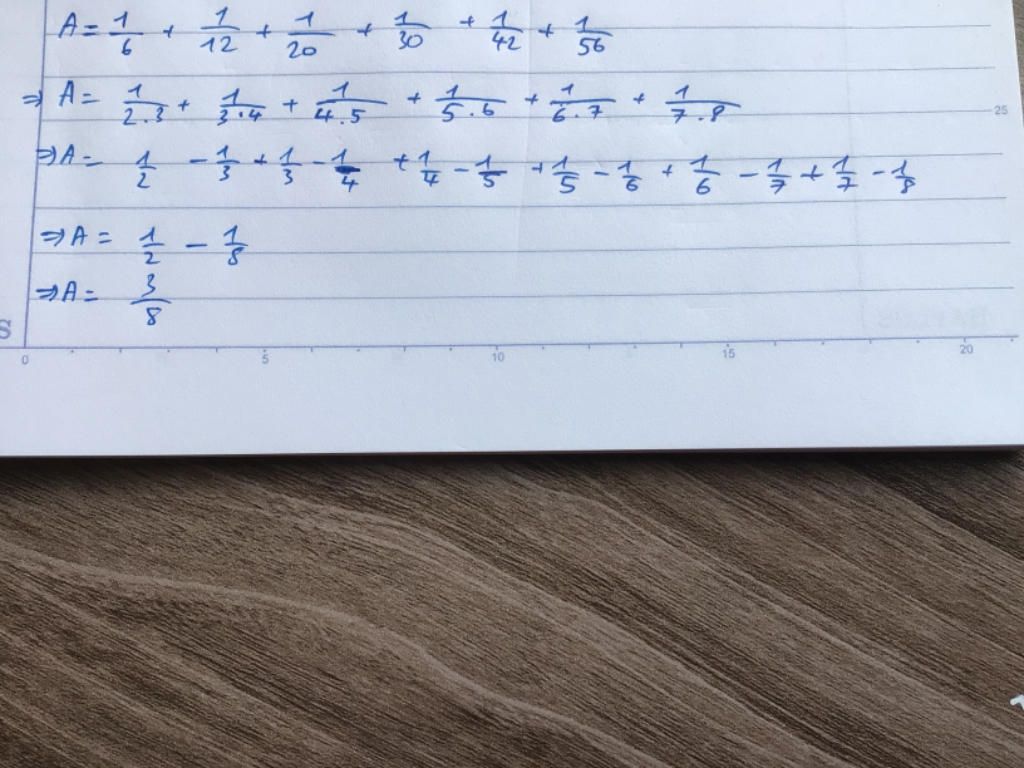 A = 1/6 + 1/12 + 1/20 + 1/30 + 1/42 + 1/56
⇒ A = 1/2.3 + 1/3.4 + 1/4.5 + 1/5.6 + 1/6.7 + 1/7.8
25
⇒ A = 1/2 - 1/3 + 1/3 - 1/4 + 1/4 - 1/5 + 1/5 - 1/6 + 1/6 - 1/7 + 1/7 - 1/8
⇒ A = 1/2 - 1/8
⇒ A = 3/8
S
0 5 10 15 20